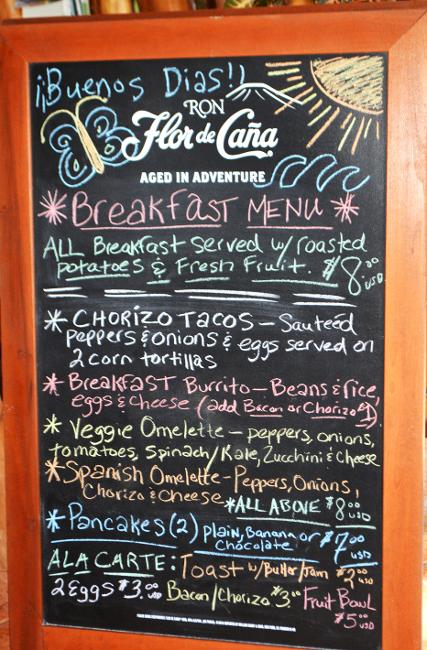 ¡¡Buenos Dias!!
RON
Flor de Caña
AGED IN ADVENTURE
*Breakfast MENU*
ALL Breakfast Served w/ roasted
potatoes & Fresh Fruit. $8.00 USD
* CHORIZO TACOS – Sauteéd
peppers & onions & eggs served on
2 corn tortillas
* BREAKFAST Burrito – Beans & rice,
eggs & Cheese (add Bacon or Chorizo $1)
* Veggie Omelette – peppers, onions,
tomatoes, Spinach/Kale, Zucchini & Cheese
* Spanish Omelette - Peppers, Onions,
Chorizo & Cheese
*ALL ABOVE $8.00 USD
* Pancakes (2) Plain, Banana or
Chocolate $7.00 USD
ALA CARTE: Toast w/Butter/Jam $2.00 USD
2 Eggs $3.00 USD Bacon/Chorizo $3.00 Fruit Bowl
$5.00 USD